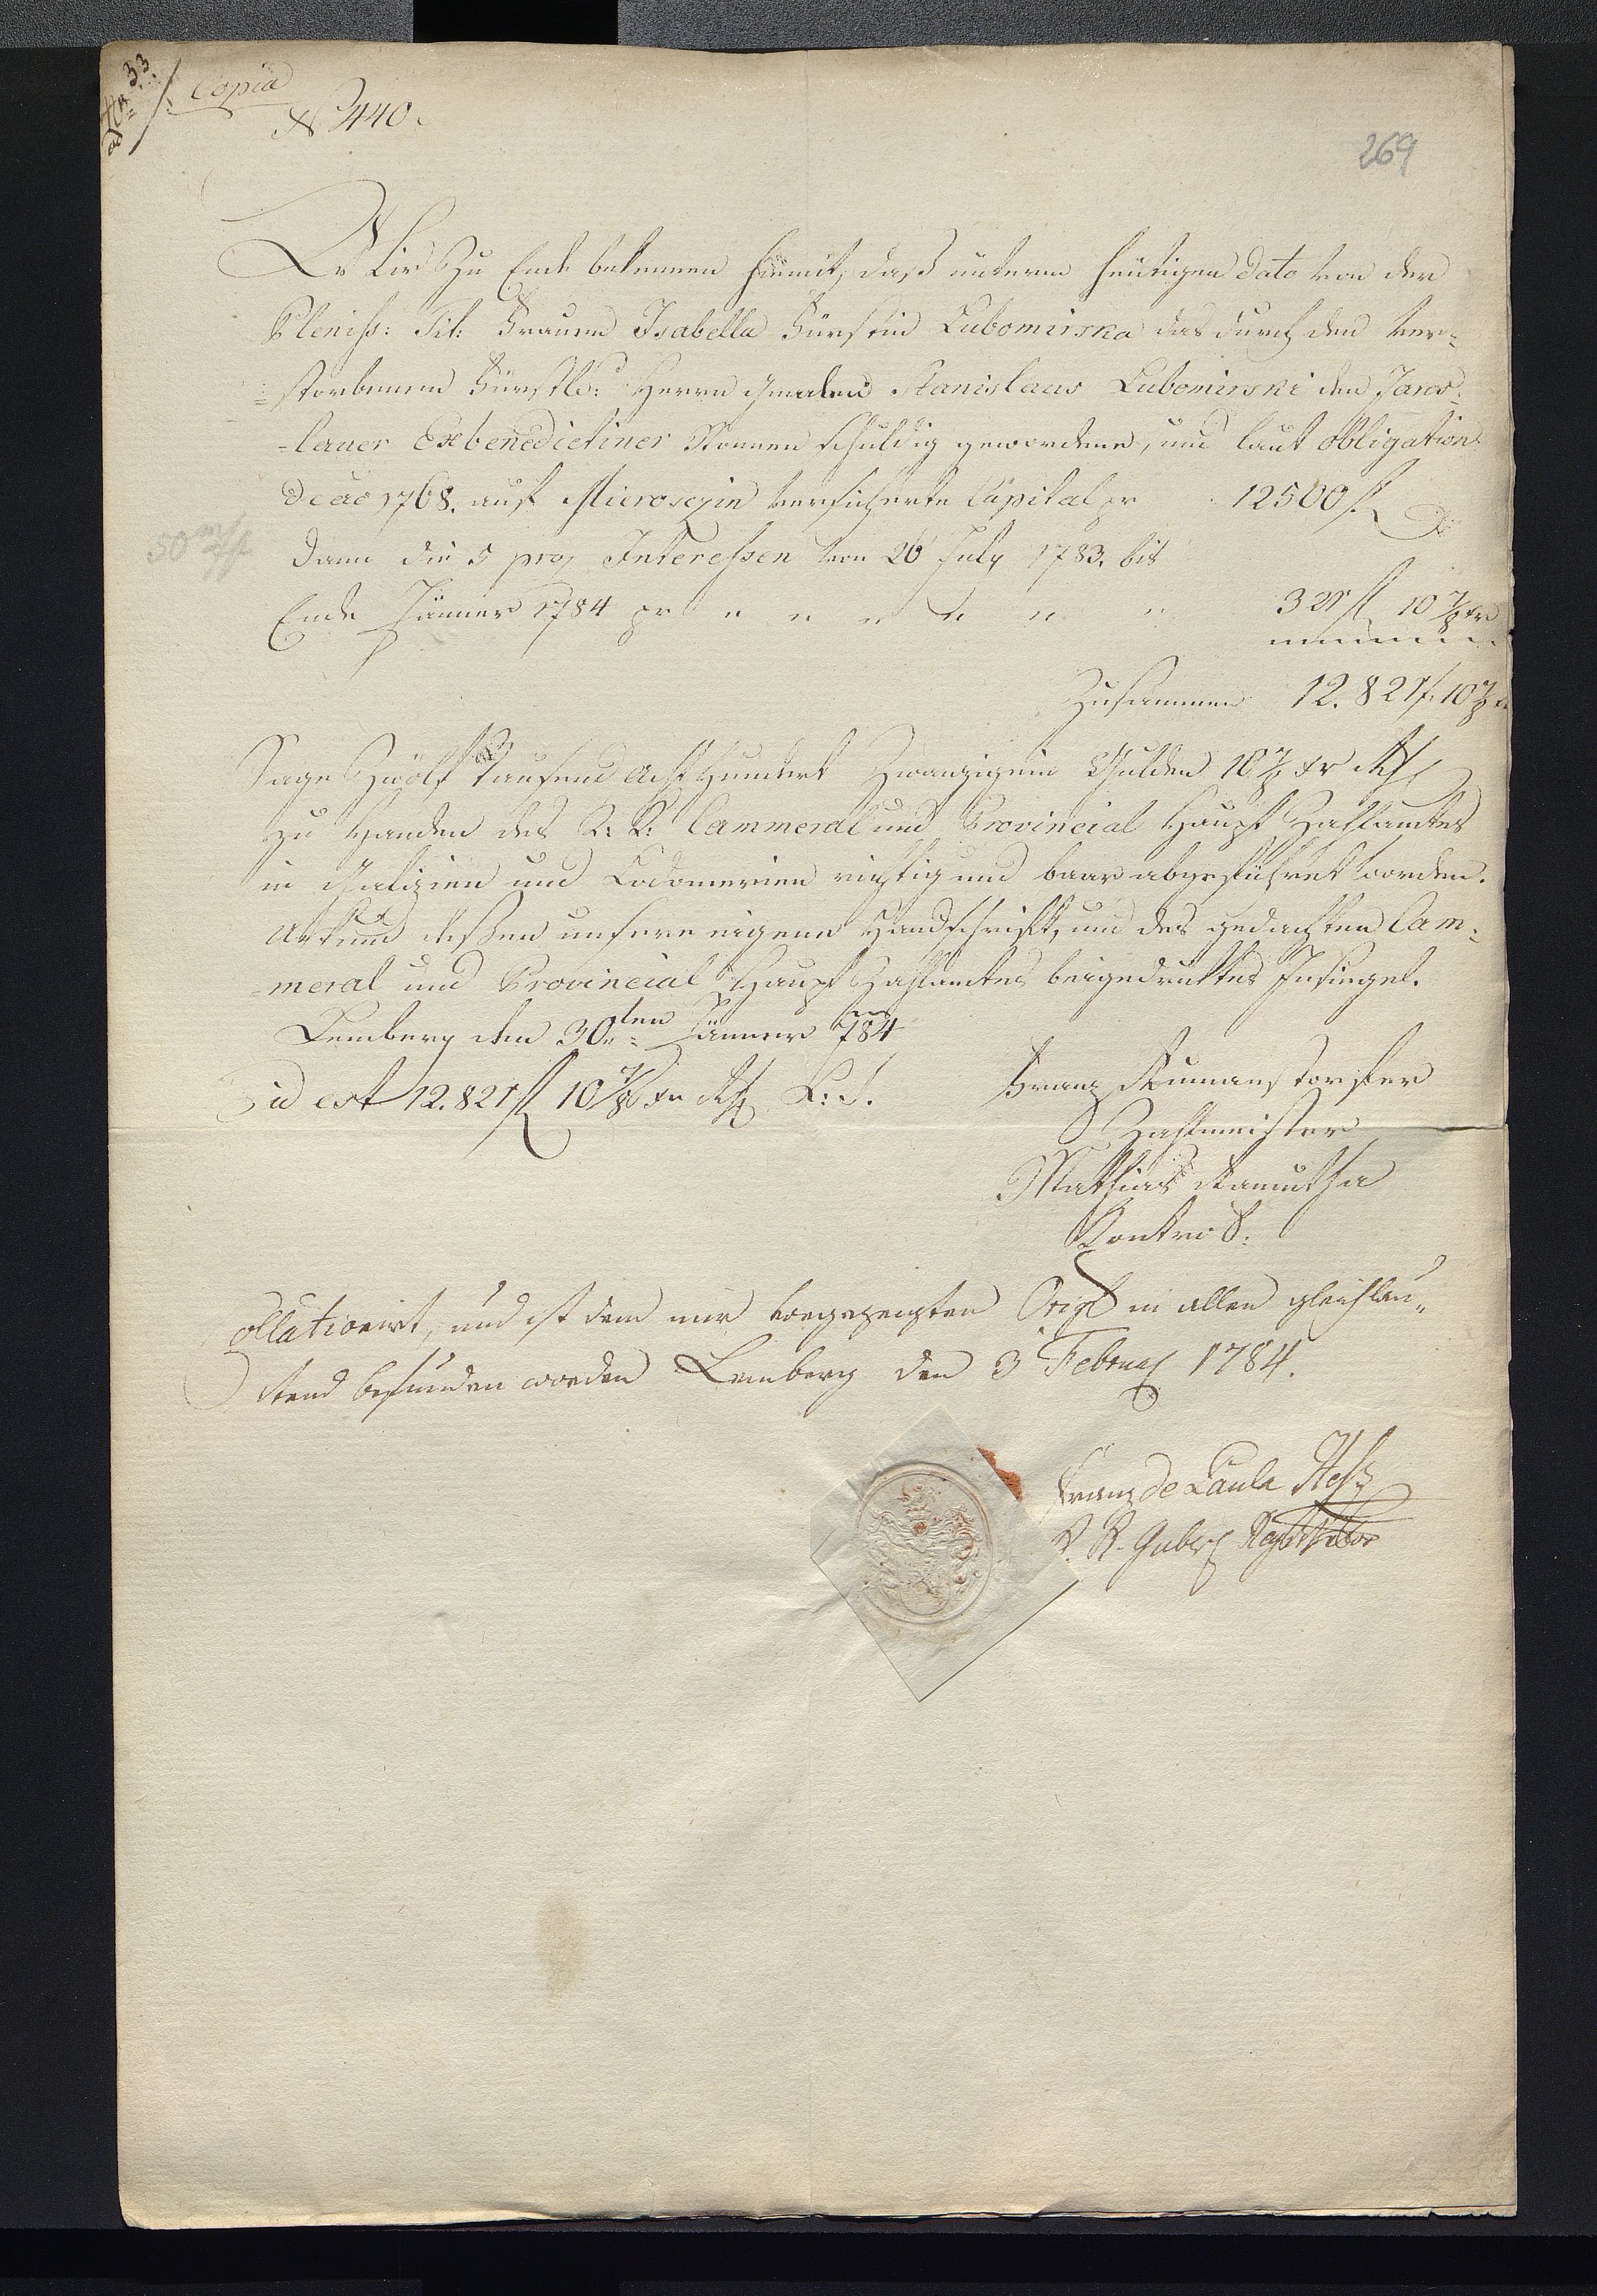 ad N<sup>ro</sup> 33.
Copia
N<sup>o</sup> 440.
269
Wir zu Ende bekennen hiemit, daß unterm heutigen Dato von der
Pleniss: Tit: Frauen Isabella Fürstin Lubomirska das durch den ver=
=storbenen Fürstl: Herrn Gemalen Stanislaus Lubomirski den Jaros=
=lauer Exbenedictiner Nonnen schuldig gewordene, und laut Obligation
De ao 1768. auf Mieroscyin versicherte Capital pr 12500 f
50 m/f
dann die 5 pro Interessen von 26 July 1783. bis
Ende Jänner 1784 pr " " " " " " 321 f 10 7/8 xr
Zusammen 12.821 f. 10 7/8
Sage Zwölf Tausend Acht Hundert Zwanzigein Gulden 10 7/8 xr
zu Handen des K: K: Cammeral und Provincial Haupt Zahlamtes
in Galizien und Lodomerien richtig und baar abgeführet worden.
Urkund dessen unsere eigene Handschrift, und des gedachten Cam=
=meral und Provincial Haupt Zahlamtes beigedrucktes Insiegel.
Lemberg den 30ten Jänner 784
id est 12.821 f 10 7/8 xr L: S.
Franz
Zahlmeister
Mathias
Kontrol:
Collationirt, und ist dem mir vorgezeigten Origl in allen gleichlau„
tend befunden worden Lemberg den 3 Februar 1784.
Franz de Paula Heß
K. K. Gubern Registrator